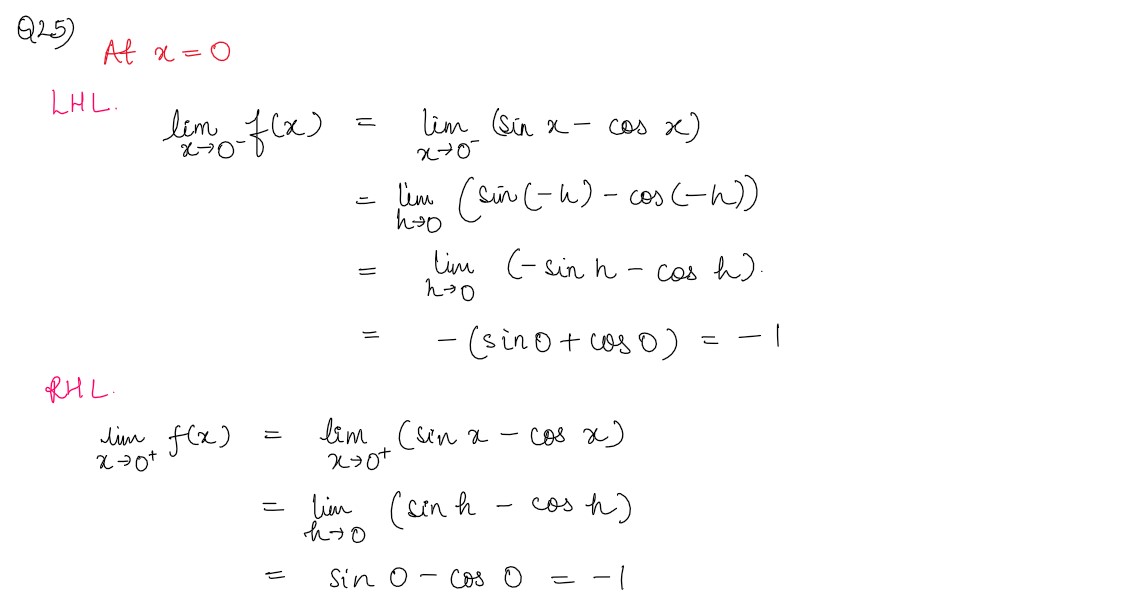 Q25)
At x = 0
LHL.
lim x→0⁻ f(x) = lim x→0⁻ (sin x - cos x)
= lim h→0 (sin(-h) - cos(-h))
= lim h→0 (-sin h - cos h).
= -(sin 0 + cos 0) = -1
RHL.
lim x→0⁺ f(x) = lim x→0⁺ (sin x - cos x)
= lim h→0 (sin h - cos h)
= sin 0 - cos 0 = -1